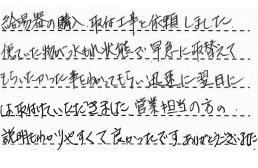 給湯器の購入 取付工事を依頼しました
使っていた物が水もれ状態で早急に取替えて
もらいたかった事もわかってもらい迅速に翌日に
は取付けていただきました 営業担当の方の
説明もわかりやすくて良かったです ありがとうございました